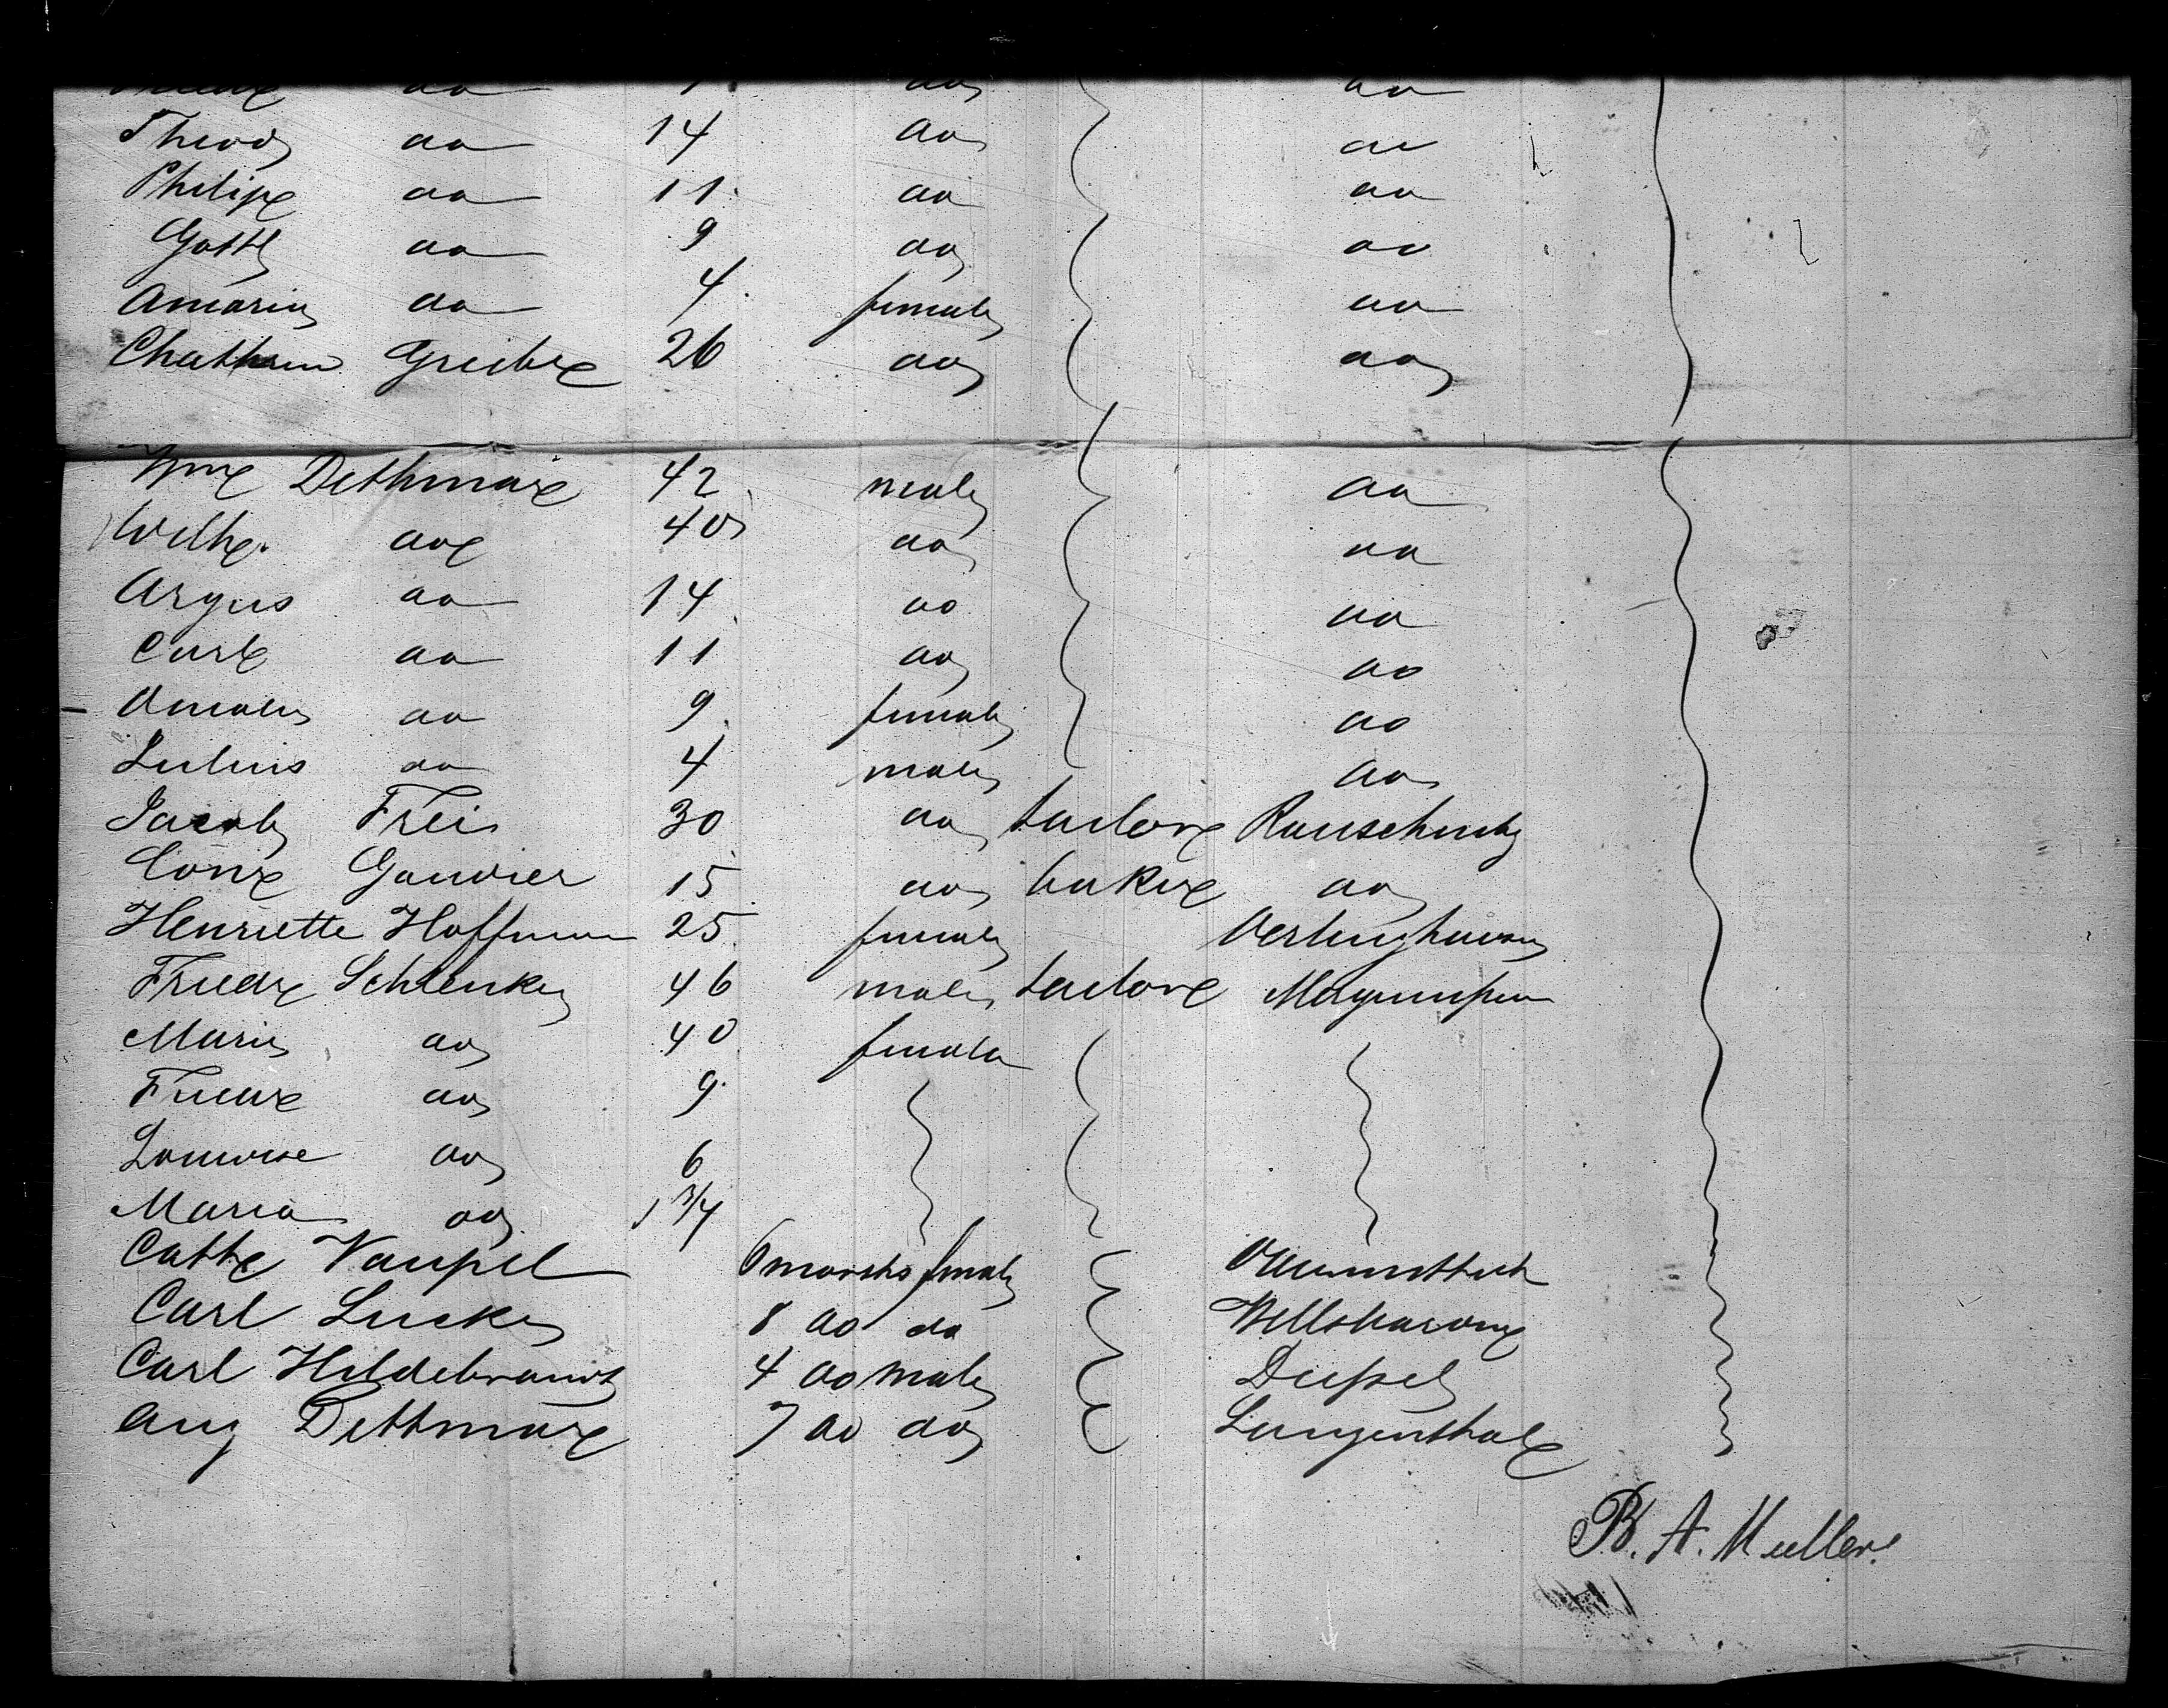 do do do
Theod do 14 do do
Philipp do 11 do do
Gottl do 9 do do
Amaria do 4 female do
Grebe 26 do do
Dethmar 42 male do
Wilh. do 40 do do
Argus do 14 do do
Carl do 11 do do
Amalia do 9 female do
Julius do 4 male do
Jacob Frei 30 do tailor
Gauvier 15 do baker do
Henriette Hoffman 25 female Oerlinghausen
Friedr Schlenker 46 male tailor
Maria do 40 female
Friedr do 9
Louise do 6
Maria do 1 3/4
Cath Vaupel 6 months female
Carl Lucke 8 do do
Carl Hildebrandt 4 do male
Aug Dettmar 7 do do Langenthal
B. A. Muller.